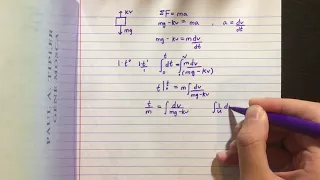 ↑ kv
ΣF = ma
mg - kv = ma , a = dv/dt
↓ mg
mg - kv = m dv/dt
1·t° 1·t¹/1 ∫₀ᵗ dt = ∫ᵛ m dv/(mg - kv)
t |₀ᵗ = m ∫ dv/mg-kv
t/m = ∫ dv/mg-kv ∫ 1/u d
PAUL A. TIPLER
GENE MOSCA